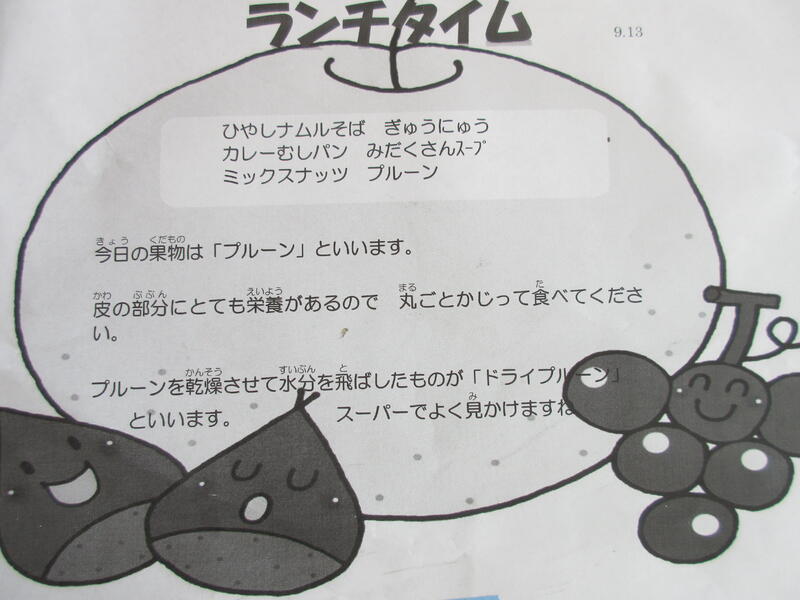 ランチタイム
9.13
ひやしナムルそば　ぎゅうにゅう
カレーむしパン　みだくさんｽｰﾌﾟ
ミックスナッツ　プルーン
きょう　くだもの
今日の果物は「プルーン」といいます。
かわ　ぶぶん　えいよう　まる　た
皮の部分にとても栄養があるので　丸ごとかじって食べてくださ
い。
かんそう　すいぶん　と
プルーンを乾燥させて水分を飛ばしたものが「ドライプルーン」
み
といいます。　スーパーでよく見かけますね